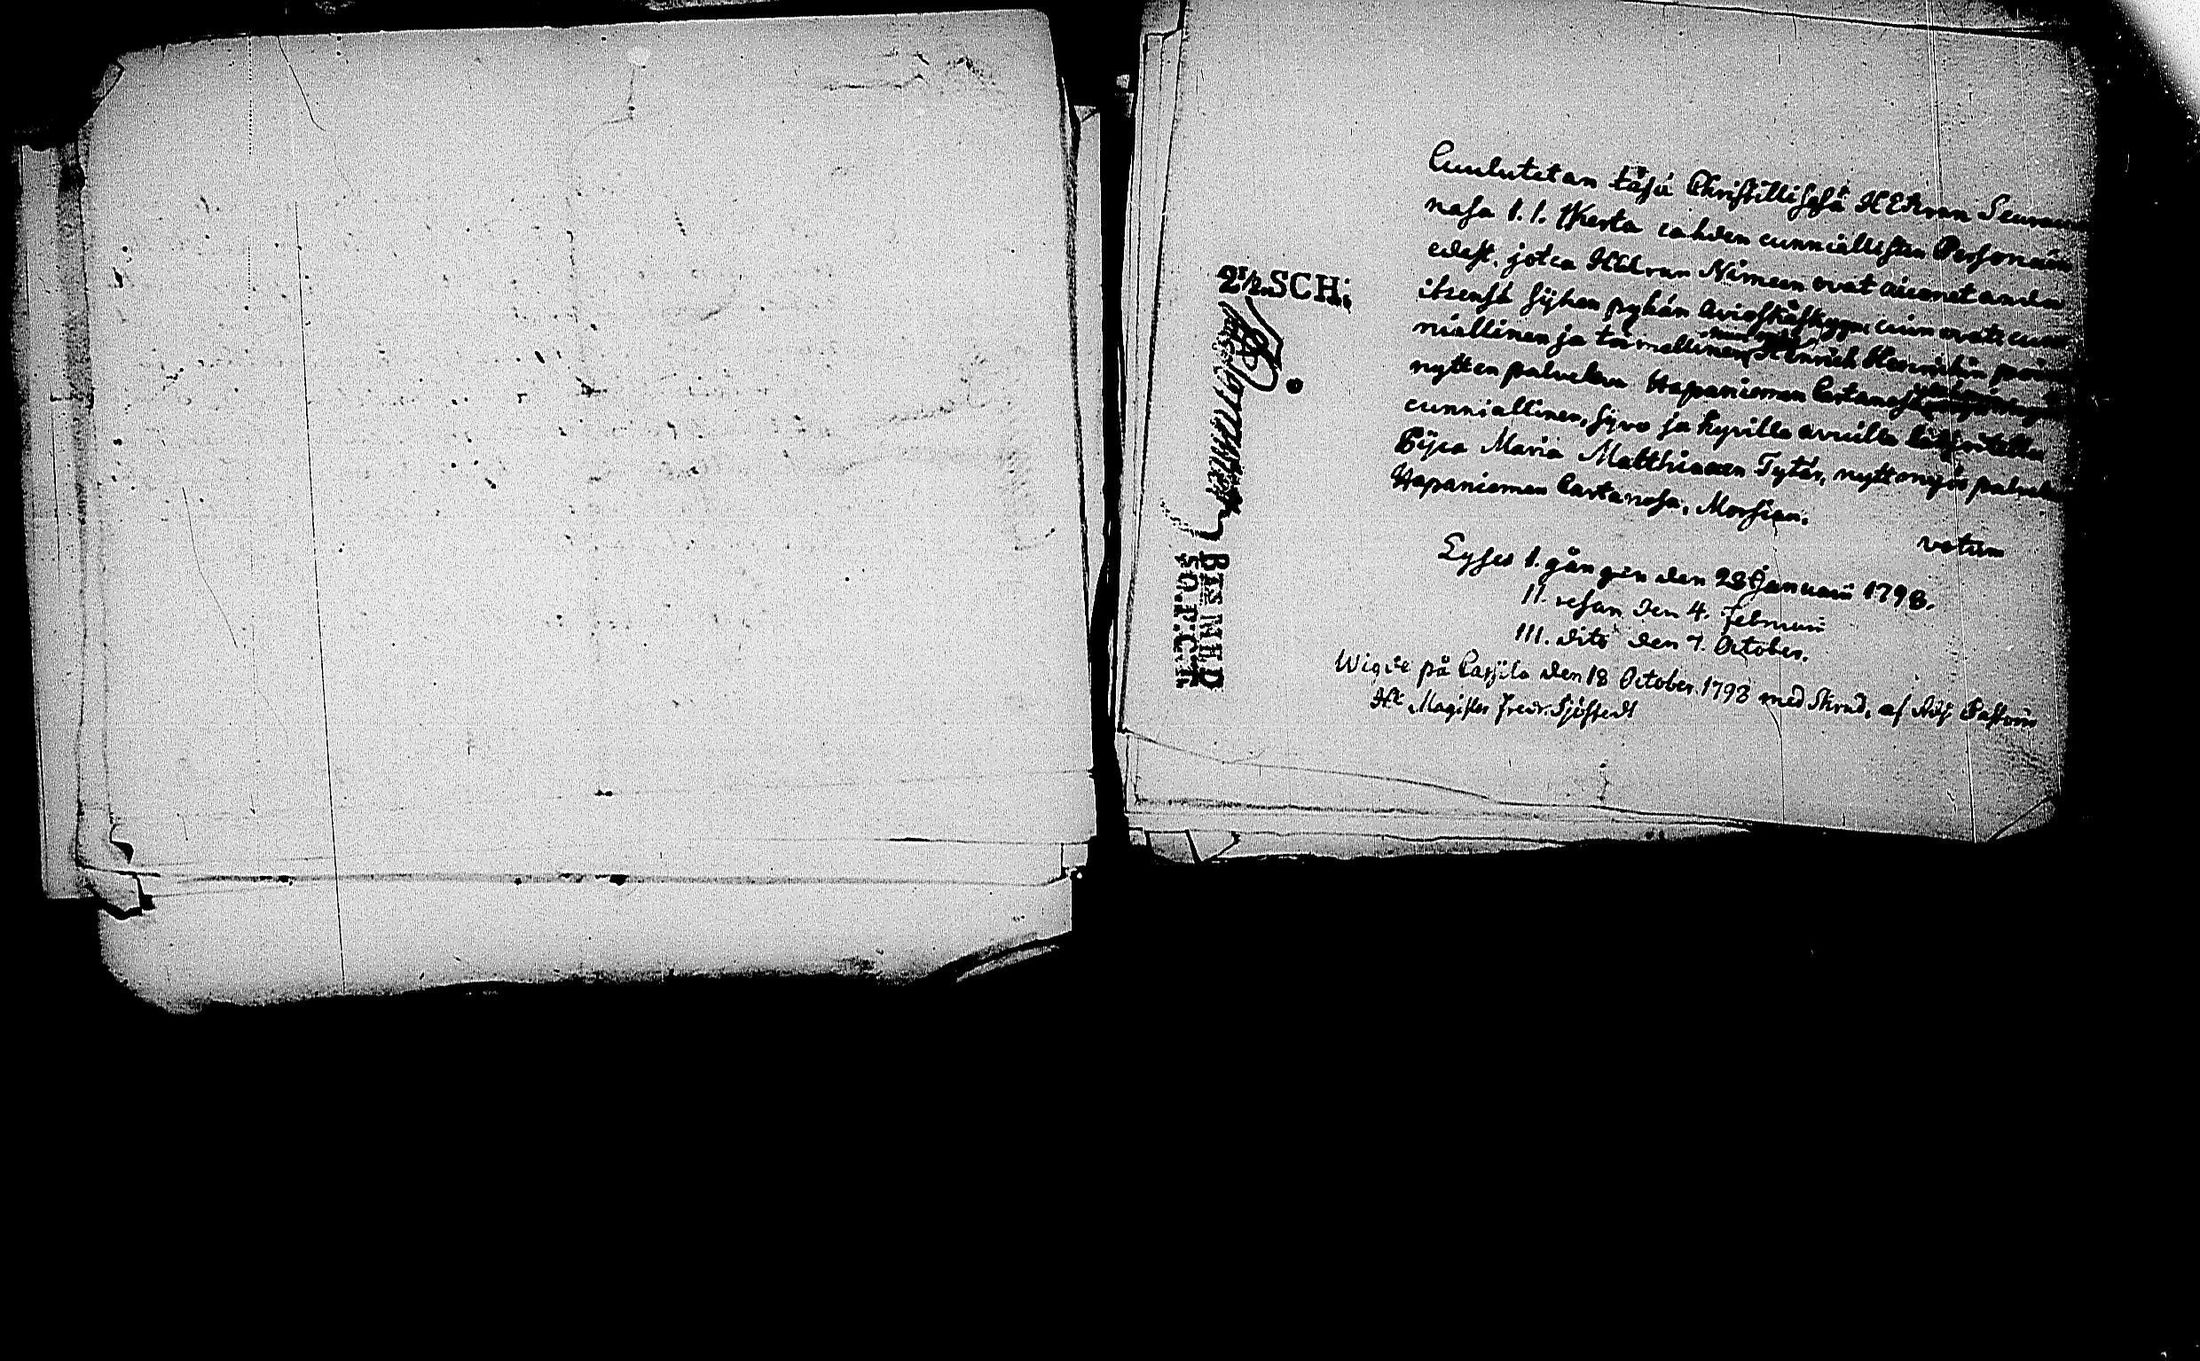 2½ SCH:
BESMED
50. P. CT.
Cuulutetan täsä Christillisesä HERran Seuracun
nasa 1. 1. Kerta cahden cunniallisen Personain
edest, jotca HERran Nimeen ovat aicenet anda
itzensä sijhen pyhän Aviofkäskyyn, cuin ovat: cun
niallinen ja toimellinen Henrich Henrichin poica
nytten palvelewa Hapaniemen Cartanosa
cunniallinen, sivo ja hyvillä avuilla
Pijca Maria Matthiaxen Tytär, nytt myös palvele
Hapaniemen Cartanosa, Morsian.
votum
Lyses 1. gången den 28 Januarii 1798.
II. resan den 4. Februarii
III. dito den 7. October.
Wigde på den 18 October 1798 med Skrud, af
Hr Magister Fredr. Sjöstedt